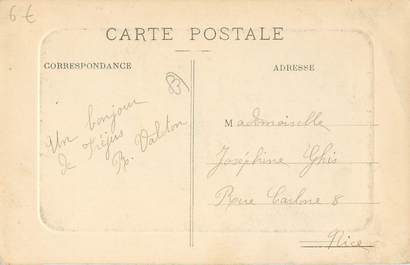 6€
CARTE POSTALE
CORRESPONDANCE
ADRESSE
83
Un bonjour
de Fréjus
B. Valston
Mademoiselle
Joséphine Ghis
Rue Carlone 8
Nice